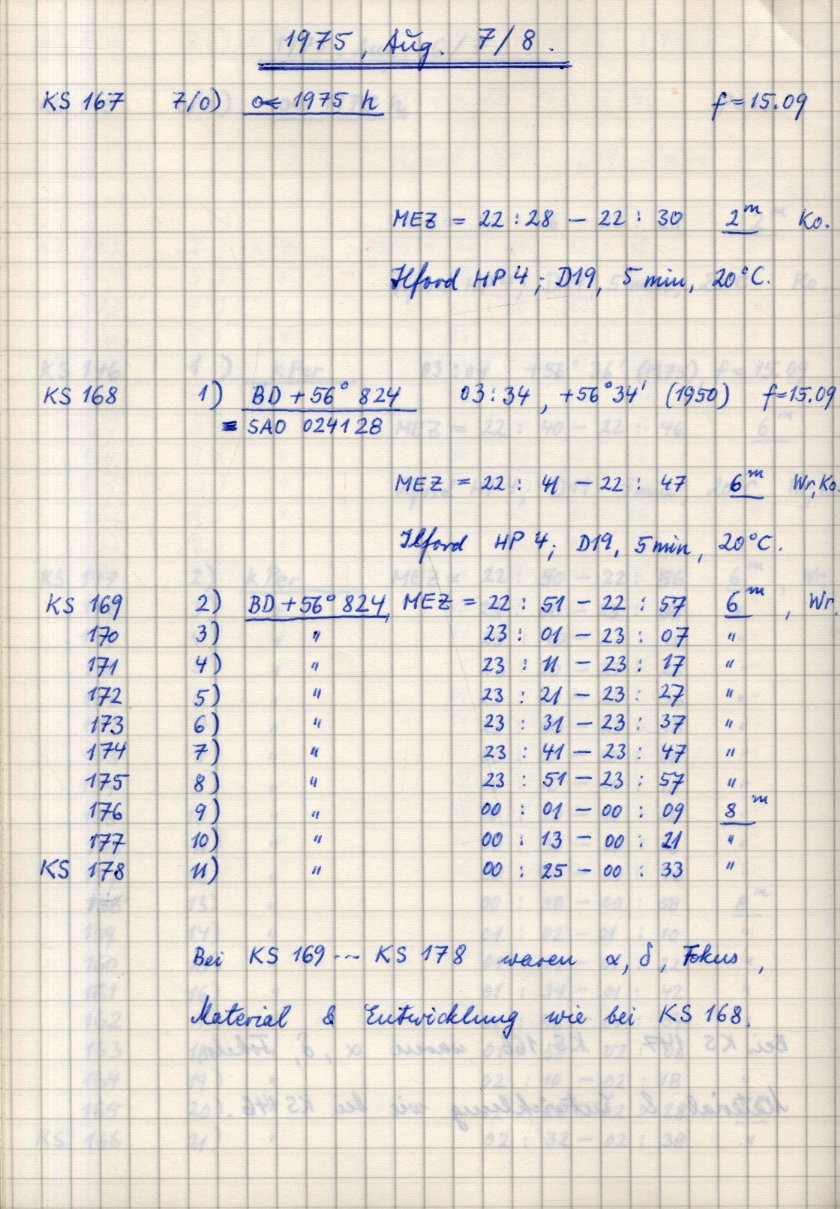 1975, Aug. 7/8.
KS 167 7/0) 1975 h f=15.09
MEZ = 22:28 – 22:30 2m Ko.
Ilford HP4; D19, 5 min, 20°C.
KS 168 1) BD+56° 824 03:34, +56°34' (1950) f=15.09
= SAO 024128
MEZ = 22:41 – 22:47 6m Wr, Ko.
Ilford HP4; D19, 5 min, 20°C.
KS 169 2) BD+56° 824, MEZ = 22:51 – 22:57 6m, Wr.
170 3) " 23:01 – 23:07 "
171 4) " 23:11 – 23:17 "
172 5) " 23:21 – 23:27 "
173 6) " 23:31 – 23:37 "
174 7) " 23:41 – 23:47 "
175 8) " 23:51 – 23:57 "
176 9) " 00:01 – 00:09 8m
177 10) " 00:13 – 00:21 "
KS 178 11) " 00:25 – 00:33 "
Bei KS 169 --- KS 178 waren α, δ, Fokus,
Material & Entwicklung wie bei KS 168.